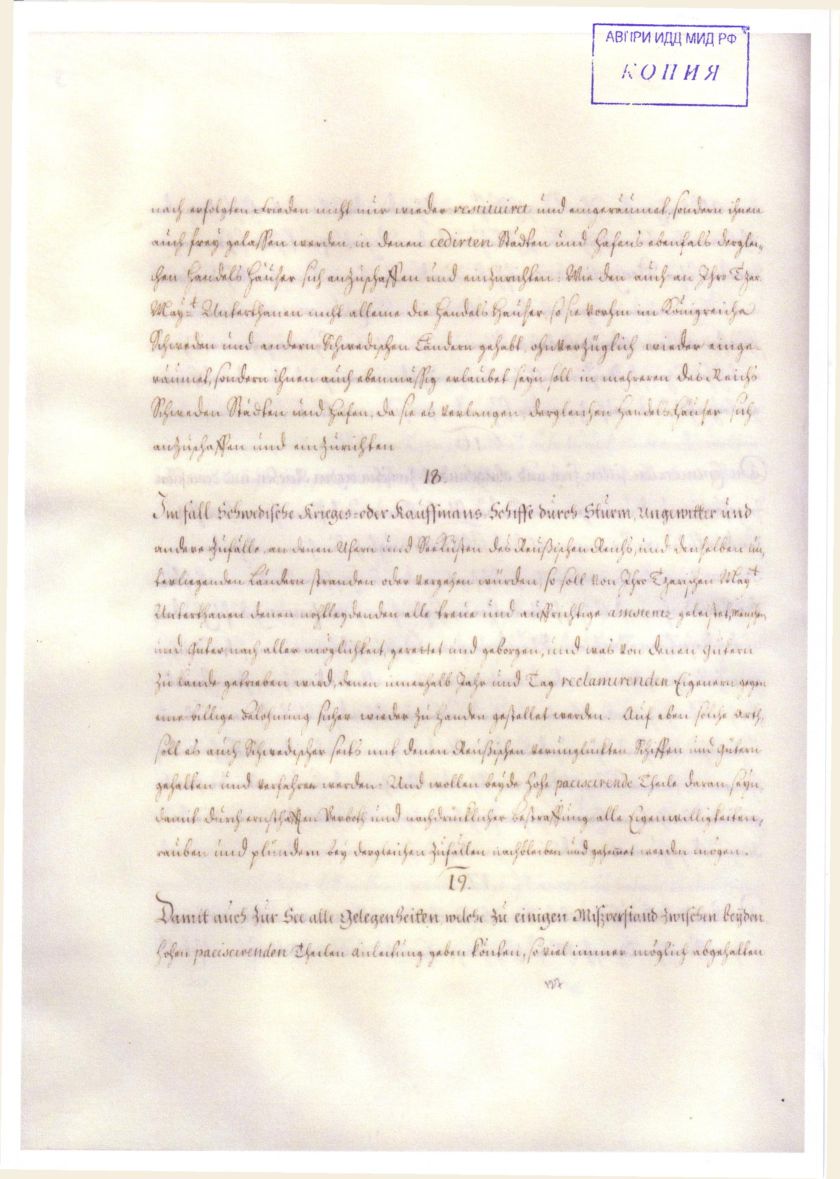 АВПРИ ИДД МИД РФ
КОПИЯ
nach erfolgten Frieden nicht nur wieder restituiret und eingeräumet, sondern ihnen
auch frey gelassen werden, in denen cedirten Städten und Hafens ebenfals derglei-
chen Handels Häuser sich anzuschaffen und einzurichten: Wie den auch an Ihro Tzar.
May:t Unterthanen nicht alleine die Handels Häuser so sie vorhin im Königreiche
Schweden und andern Schwedischen Ländern gehabt, ohnverzüglich wieder einge-
räumet, sondern ihnen auch ebenmässig erlaubet seyn soll in mehreren des Reichs
Schweden Städten und Hafen, da sie es verlangen, dergleichen Handels Häuser sich
anzuschaffen und einzurichten
18.
Im fall Schwedische Krieges- oder Kauffmans Schiffe durch Sturm, Ungewitter und
andere Zufälle, an denen Ufern und SeeKüsten des Reußischen Reichs, und denselben un-
terliegenden Ländern stranden oder vergehen würden, so soll von Ihro Tzarischen May:t
Unterthanen denen nohtleydenden alle treue und auffrichtige assistence geleistet, Menschen
und Güter, nach aller möglichkeit, gerettet und geborgen, und was von denen Gütern
zu lande getrieben wird, denen innerhalb Jahr und Tag reclamirenden Eigenern gegen
eine billige Belohnung sicher wieder zu Handen gestellet werden. Auf eben solche arth,
soll es auch Schwedischer seits mit denen Reußischen verunglückten Schiffen und Gütern
gehalten und verfahren werden: Und wollen beyde hohe paciscirende Theile daran seyn,
damit durch ernsthafften Verboth und nachdrücklicher bestraffung alle Eigenwilligkeiten,
rauben und plündern bey dergleichen Zufällen nachbleiben und gehemmet werden mögen.
19.
Damit auch zur See alle Gelegenheiten, welche zu einigen Mißverstand zwischen beyden
hohen paciscirenden Theilen anleitung geben könten, so viel immer möglich abgehalten